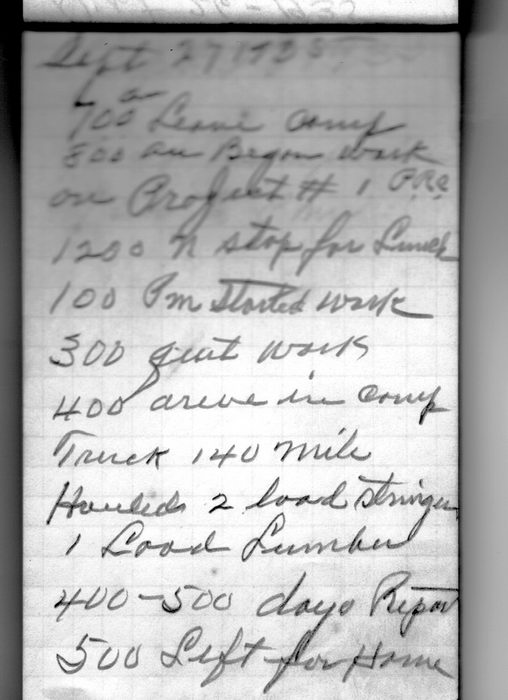 Sept 27 1935
700 a Leave Camp
800 am Began work
on Project # 1 P.R.C
1200 N stop for Lunch
100 Pm Started work
300 quit work
400 areve in Camp
Truck 140 Mile
Hauled 2 load Stringer
1 Load Lumber
400-500 days Report
500 Left for Home